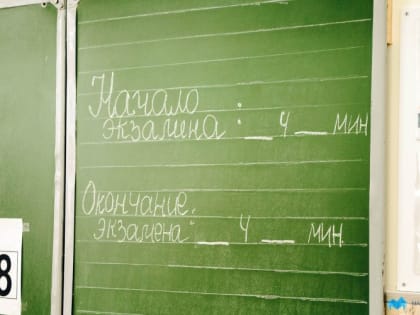 Начало
экзамена : __ ч __ мин
Окончание
экзамена __ ч __ мин.
8